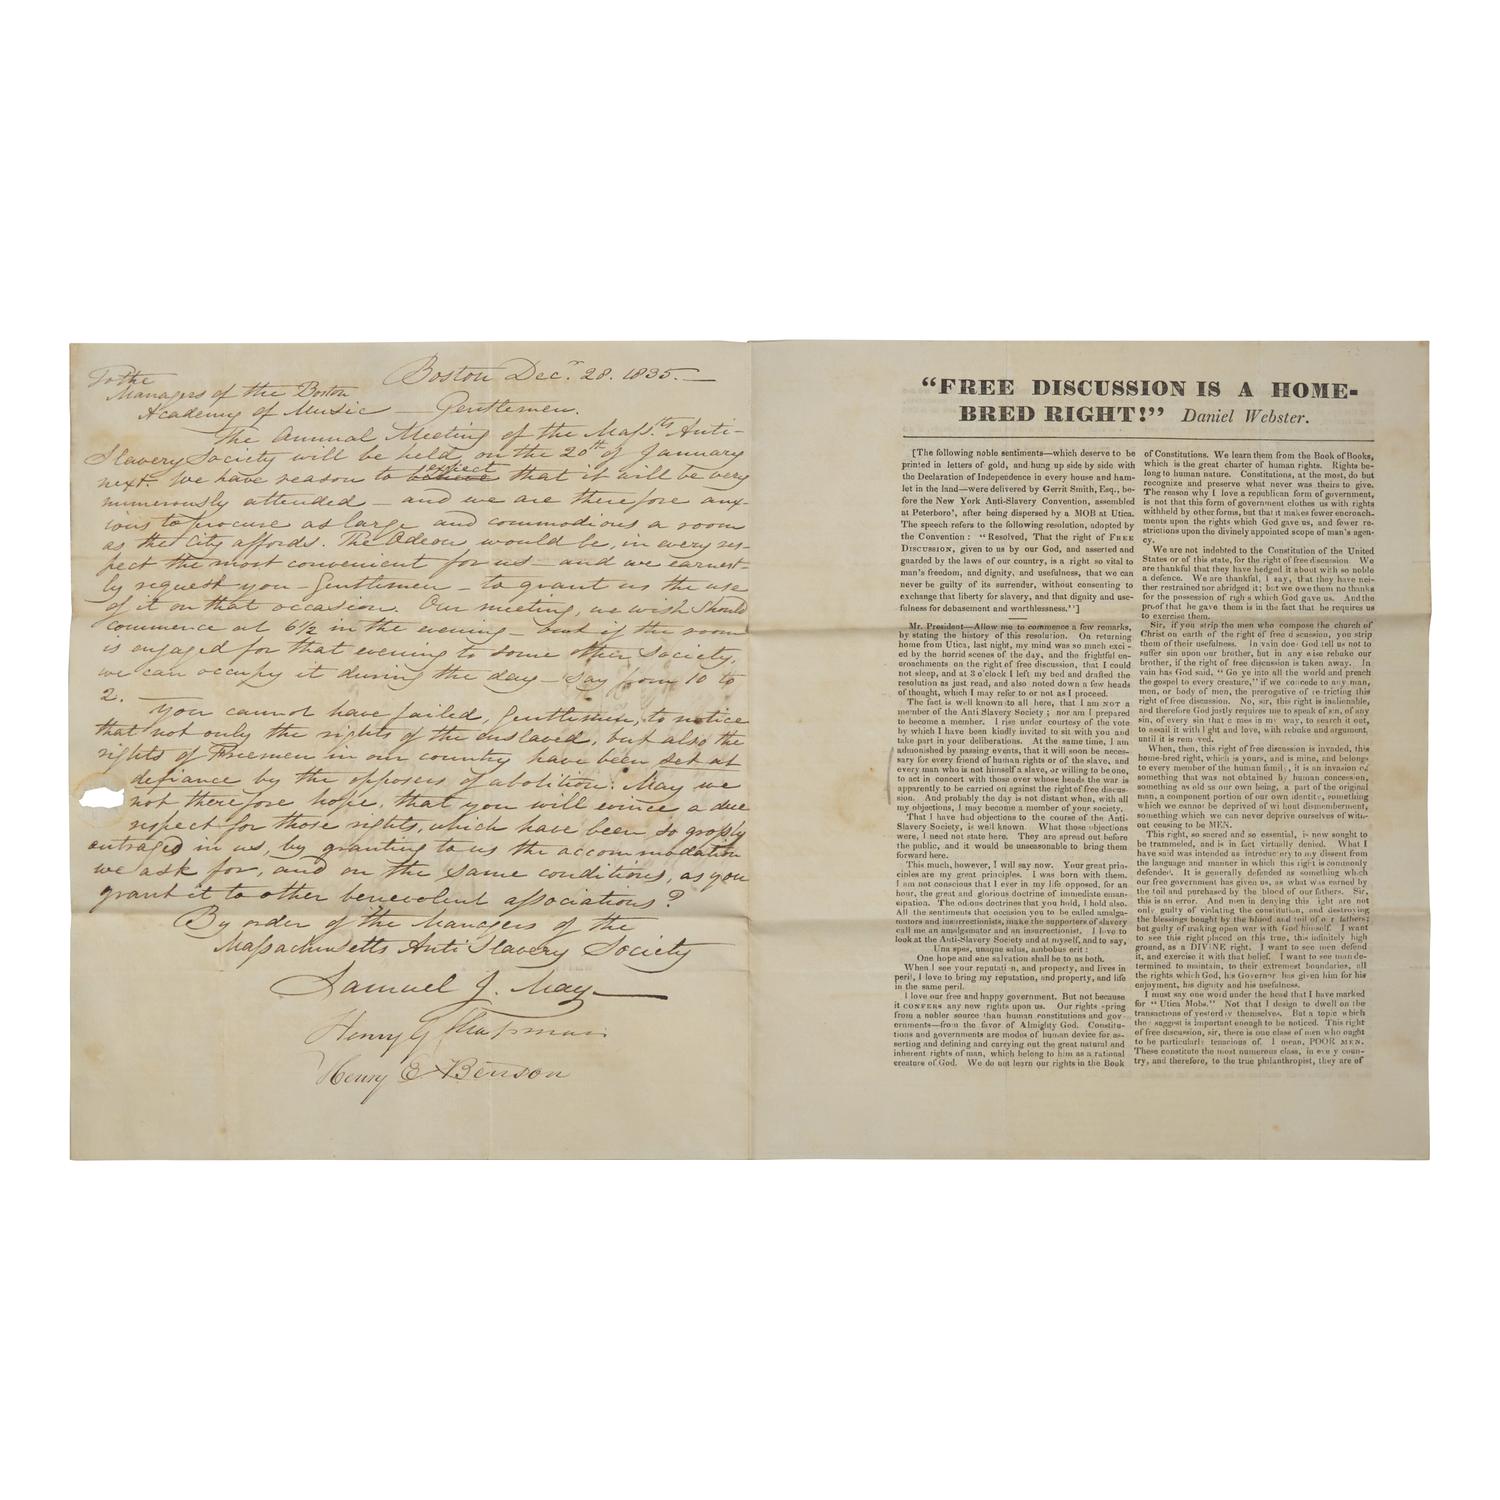 Boston Decr. 28. 1835.—
To the
Managers of the Boston
Academy of Music — Gentlemen.
The Annual Meeting of the Massts. Anti-
Slavery Society will be held on the 20th of January
next. We have reason to believe expect that it will be very
numerously attended — and we are therefore anx-
ious to procure as large and commodious a room
as the City affords. The Odeon would be, in every res-
pect the most convenient for us — and we earnest-
ly request you — Gentlemen — to grant us the use
of it on that occasion. Our meeting, we wish should
commence at 6½ in the evening — but if the room
is engaged for that evening to some other Society,
we can occupy it during the day — say from 10 to
2.
You cannot have failed, Gentlemen, to notice
that not only the rights of the enslaved, but also the
rights of Freemen in our country have been set at
defiance by the opposers of abolition. May we
not therefore hope, that you will evince a due
respect for those rights, which have been so grossly
outraged in us, by granting to us the accommodation
we ask for, and on the same conditions, as you
grant it to other benevolent associations?
By order of the Managers of the
Massachusetts Anti Slavery Society
Samuel J. May
Henry G Chapman
Henry E Benson
“FREE DISCUSSION IS A HOME-
BRED RIGHT!” Daniel Webster.
[The following noble sentiments—which deserve to be
printed in letters of gold, and hung up side by side with
the Declaration of Independence in every house and ham-
let in the land—were delivered by Gerrit Smith, Esq., be-
fore the New York Anti-Slavery Convention, assembled
at Peterboro’, after being dispersed by a MOB at Utica.
The speech refers to the following resolution, adopted by
the Convention: “Resolved, That the right of FREE
DISCUSSION, given to us by our God, and asserted and
guarded by the laws of our country, is a right so vital to
man’s freedom, and dignity, and usefulness, that we can
never be guilty of its surrender, without consenting to
exchange that liberty for slavery, and that dignity and use-
fulness for debasement and worthlessness.”]
Mr. President—Allow me to commence a few remarks,
by stating the history of this resolution. On returning
home from Utica, last night, my mind was so much exci-
ed by the horrid scenes of the day, and the frightful en-
croachments on the right of free discussion, that I could
not sleep, and at 3 o’clock I left my bed and drafted the
resolution as just read, and also noted down a few heads
of thought, which I may refer to or not as I proceed.
The fact is well known to all here, that I am NOT a
member of the Anti Slavery Society; nor am I prepared
to become a member. I rise under courtesy of the vote
by which I have been kindly invited to sit with you and
take part in your deliberations. At the same time, I am
admonished by passing events, that it will soon be neces-
sary for every friend of human rights or of the slave, and
every man who is not himself a slave, or willing to be one,
to act in concert with those over whose heads the war is
apparently to be carried on against the right of free discus-
sion. And probably the day is not distant when, with all
my objections, I may become a member of your society.
That I have had objections to the course of the Anti-
Slavery Society, is well known. What those objections
were, I need not state here. They are spread out before
the public, and it would be unseasonable to bring them
forward here.
This much, however, I will say now. Your great prin-
ciples are my great principles. I was born with them.
I am not conscious that I ever in my life opposed, for an
hour, the great and glorious doctrine of immediate eman-
cipation. The odious doctrines that you hold, I hold also.
All the sentiments that occasion you to be called amalga-
mators and insurrectionists, make the supporters of slavery
call me an amalgamator and an insurrectionist. I love to
look at the Anti-Slavery Society and at myself, and to say,
Una spes, unaque salus, ambobus erit:
One hope and one salvation shall be to us both.
When I see your reputati n, and property, and lives in
peril, I love to bring my reputation, and property, and life
in the same peril.
I love our free and happy government. But not because
it CONFERS any new rights upon us. Our rights spring
from a nobler source than human constitutions and gov-
ernments—from the favor of Almighty God. Constitu-
tions and governments are modes of human device for as-
serting and defining and carrying out the great natural and
inherent rights of man, which belong to him as a rational
creature of God. We do not learn our rights in the Book
of Constitutions. We learn them from the Book of Books,
which is the great charter of human rights. Rights be-
long to human nature. Constitutions, at the most, do but
recognize and preserve what never was theirs to give.
The reason why I love a republican form of government,
is not that this form of government clothes us with rights
withheld by other forms, but that it makes fewer encroach-
ments upon the rights which God gave us, and fewer re-
strictions upon the divinely appointed scope of man’s agen-
cy.
We are not indebted to the Constitution of the United
States or of this state, for the right of free discussion. We
are thankful that they have hedged it about with so noble
a defence. We are thankful, I say, that they have nei-
ther restrained nor abridged it; but we owe them no thanks
for the possession of righ s which God gave us. And the
proof that he gave them is in the fact that he requires us
to exercise them.
Sir, if you strip the men who compose the church of
Christ on earth of the right of free d scussion, you strip
them of their usefulness. In vain does God tell us not to
suffer sin upon our brother, but in any wise rebuke our
brother, if the right of free discussion is taken away. In
vain has God said, “Go ye into all the world and preach
the gospel to every creature,” if we concede to any man,
men, or body of men, the prerogative of re tricting this
right of free discussion. No, sir, this right is inalienable,
and therefore God justly requires me to speak of sin, of any
sin, of every sin that c mes in my way, to search it out,
to assail it with l ght and love, with rebuke and argument,
until it is rem ved.
When, then, this right of free discussion is invaded, this
home-bred right, which is yours, and is mine, and belongs
to every member of the human family, it is an invasion of
something that was not obtained by human concession,
something as old as our own being, a part of the original
man, a component portion of our own identity, something
which we cannot be deprived of wi hout dismemberment,
something which we can never deprive ourselves of with-
out ceasing to be MEN.
This right, so sacred and so essential, is now sought to
be trammeled, and is in fact virtually denied. What I
have said was intended as introductory to my dissent from
the language and manner in which this right is commonly
defended. It is generally defended as something which
our free government has given us, as what was earned by
the toil and purchased by the blood of our fathers. Sir,
this is an error. And men in denying this right are not
only guilty of violating the constitution, and destroying
the blessings bought by the blood and toil of our fathers;
but guilty of making open war with God himself. I want
to see this right placed on this true, this infinitely high
ground, as a DIVINE right. I want to see men defend
it, and exercise it with that belief. I want to see men de-
termined to maintain, to their extremest boundaries, all
the rights which God, his Governor has given him for his
enjoyment, his dignity and his usefulness.
I must say one word under the head that I have marked
for “Utica Mobs.” Not that I design to dwell on the
transactions of yesterday themselves. But a topic which
they suggest is important enough to be noticed. This right
of free discussion, sir, there is one class of men who ought
to be particularly tenacious of. I mean, POOR MEN.
These constitute the most numerous class, in every coun-
try, and therefore, to the true philanthropist, they are of